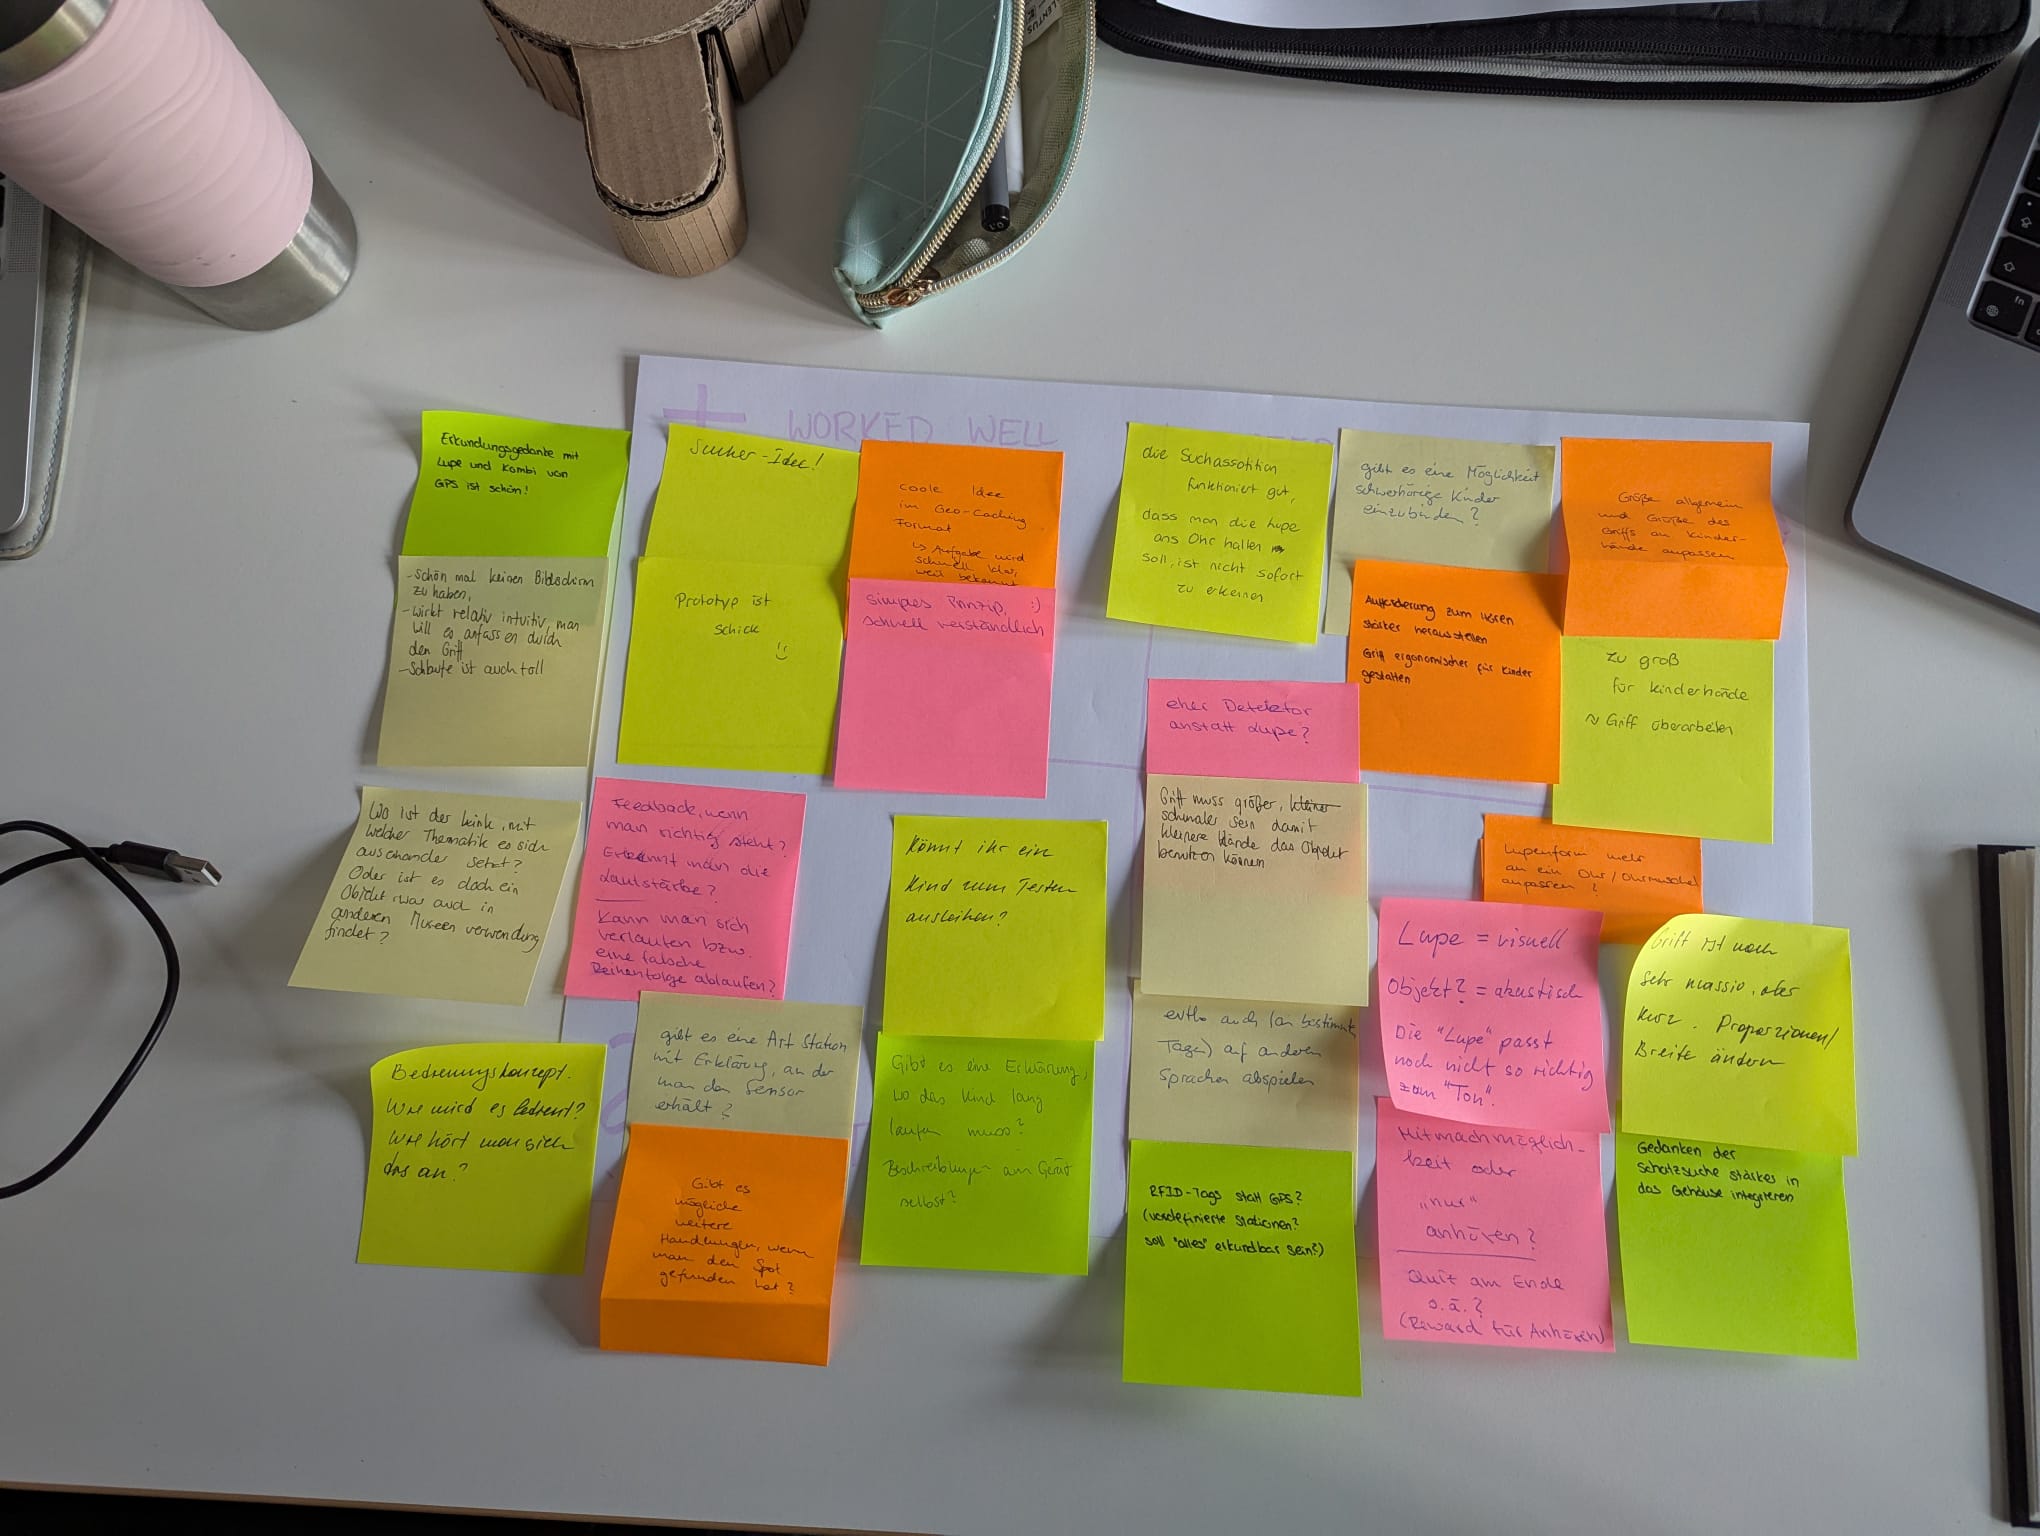 WORKED WELL
Erkundungsgedanke mit
Lupe und Kombi von
GPS ist schön!
- schön mal keinen Bildschirm
zu haben,
- wirkt relativ intuitiv, man
will es anfassen durch
den Griff
- Schbute ist auch toll
Sucher-Idee!
Prototyp ist
schick
coole Idee
im Geo-Caching
Format
↳ Aufgabe wird
schnell klar,
weil bekannt
simples Prinzip, :)
schnell verständlich
die Suchassotition
funktioniert gut,
dass man die Lupe
ans Ohr halten
soll, ist nicht sofort
zu erkennen
gibt es eine Möglichkeit
schwerhörige Kinder
einzubinden?
Größe allgemein
und Größe des
Griffs an Kinder-
hände anpassen
Aufforderung zum Hören
stärker herausstellen
Griff ergonomischer für Kinder
gestalten
zu groß
für Kinderhände
Griff überarbeiten
eher Detektor
anstatt Lupe?
Griff muss größer, kleiner
schmaler sein damit
kleinere Hände das Objekt
benutzen können
Lupenform mehr
an ein Ohr/Ohrmuschel
anpassen?
Wo ist der Link, mit
welcher Thematik es sich
auseinander setzt?
Oder ist es doch ein
Objekt was auch in
anderen Museen verwendung
findet?
Feedback, wenn
man richtig steht?
Erkennt man die
Lautstärke?
Kann man sich
verlaufen bzw.
eine falsche
Reihenfolge ablaufen?
Könnt ihr ein
Kind zum Testen
ausleihen?
Lupe = visuell
Objekt? = akustisch
Die "Lupe" passt
noch nicht so richtig
zum "Ton".
Griff ist noch
sehr massiv, aber
kurz. Proporzionen/
Breite ändern
Bedienungskonzept.
Wie wird es bedient?
Wie hört man sich
das an?
gibt es eine Art Station
mit Erklärung, an der
man den Sensor
erhält?
Gibt es
mögliche
weitere
Handlungen, wenn
man den Spot
gefunden hat?
Gibt es eine Erklärung,
wo das Kind lang
laufen muss?
Beschreibungen am Gerät
selbst?
evtl. auch (an bestimmten
Tagen) auf anderen
Sprachen abspielen
RFID-Tags statt GPS?
(vordefinierte Stationen?
soll "alles" erkundbar sein?)
Mitmachmöglich-
keit oder
„nur"
anhören?
Quiz am Ende
o.ä.?
(Reward für Anhören)
Gedanken der
Schatzsuche stärker in
das Gehäuse integrieren
0.1
fn